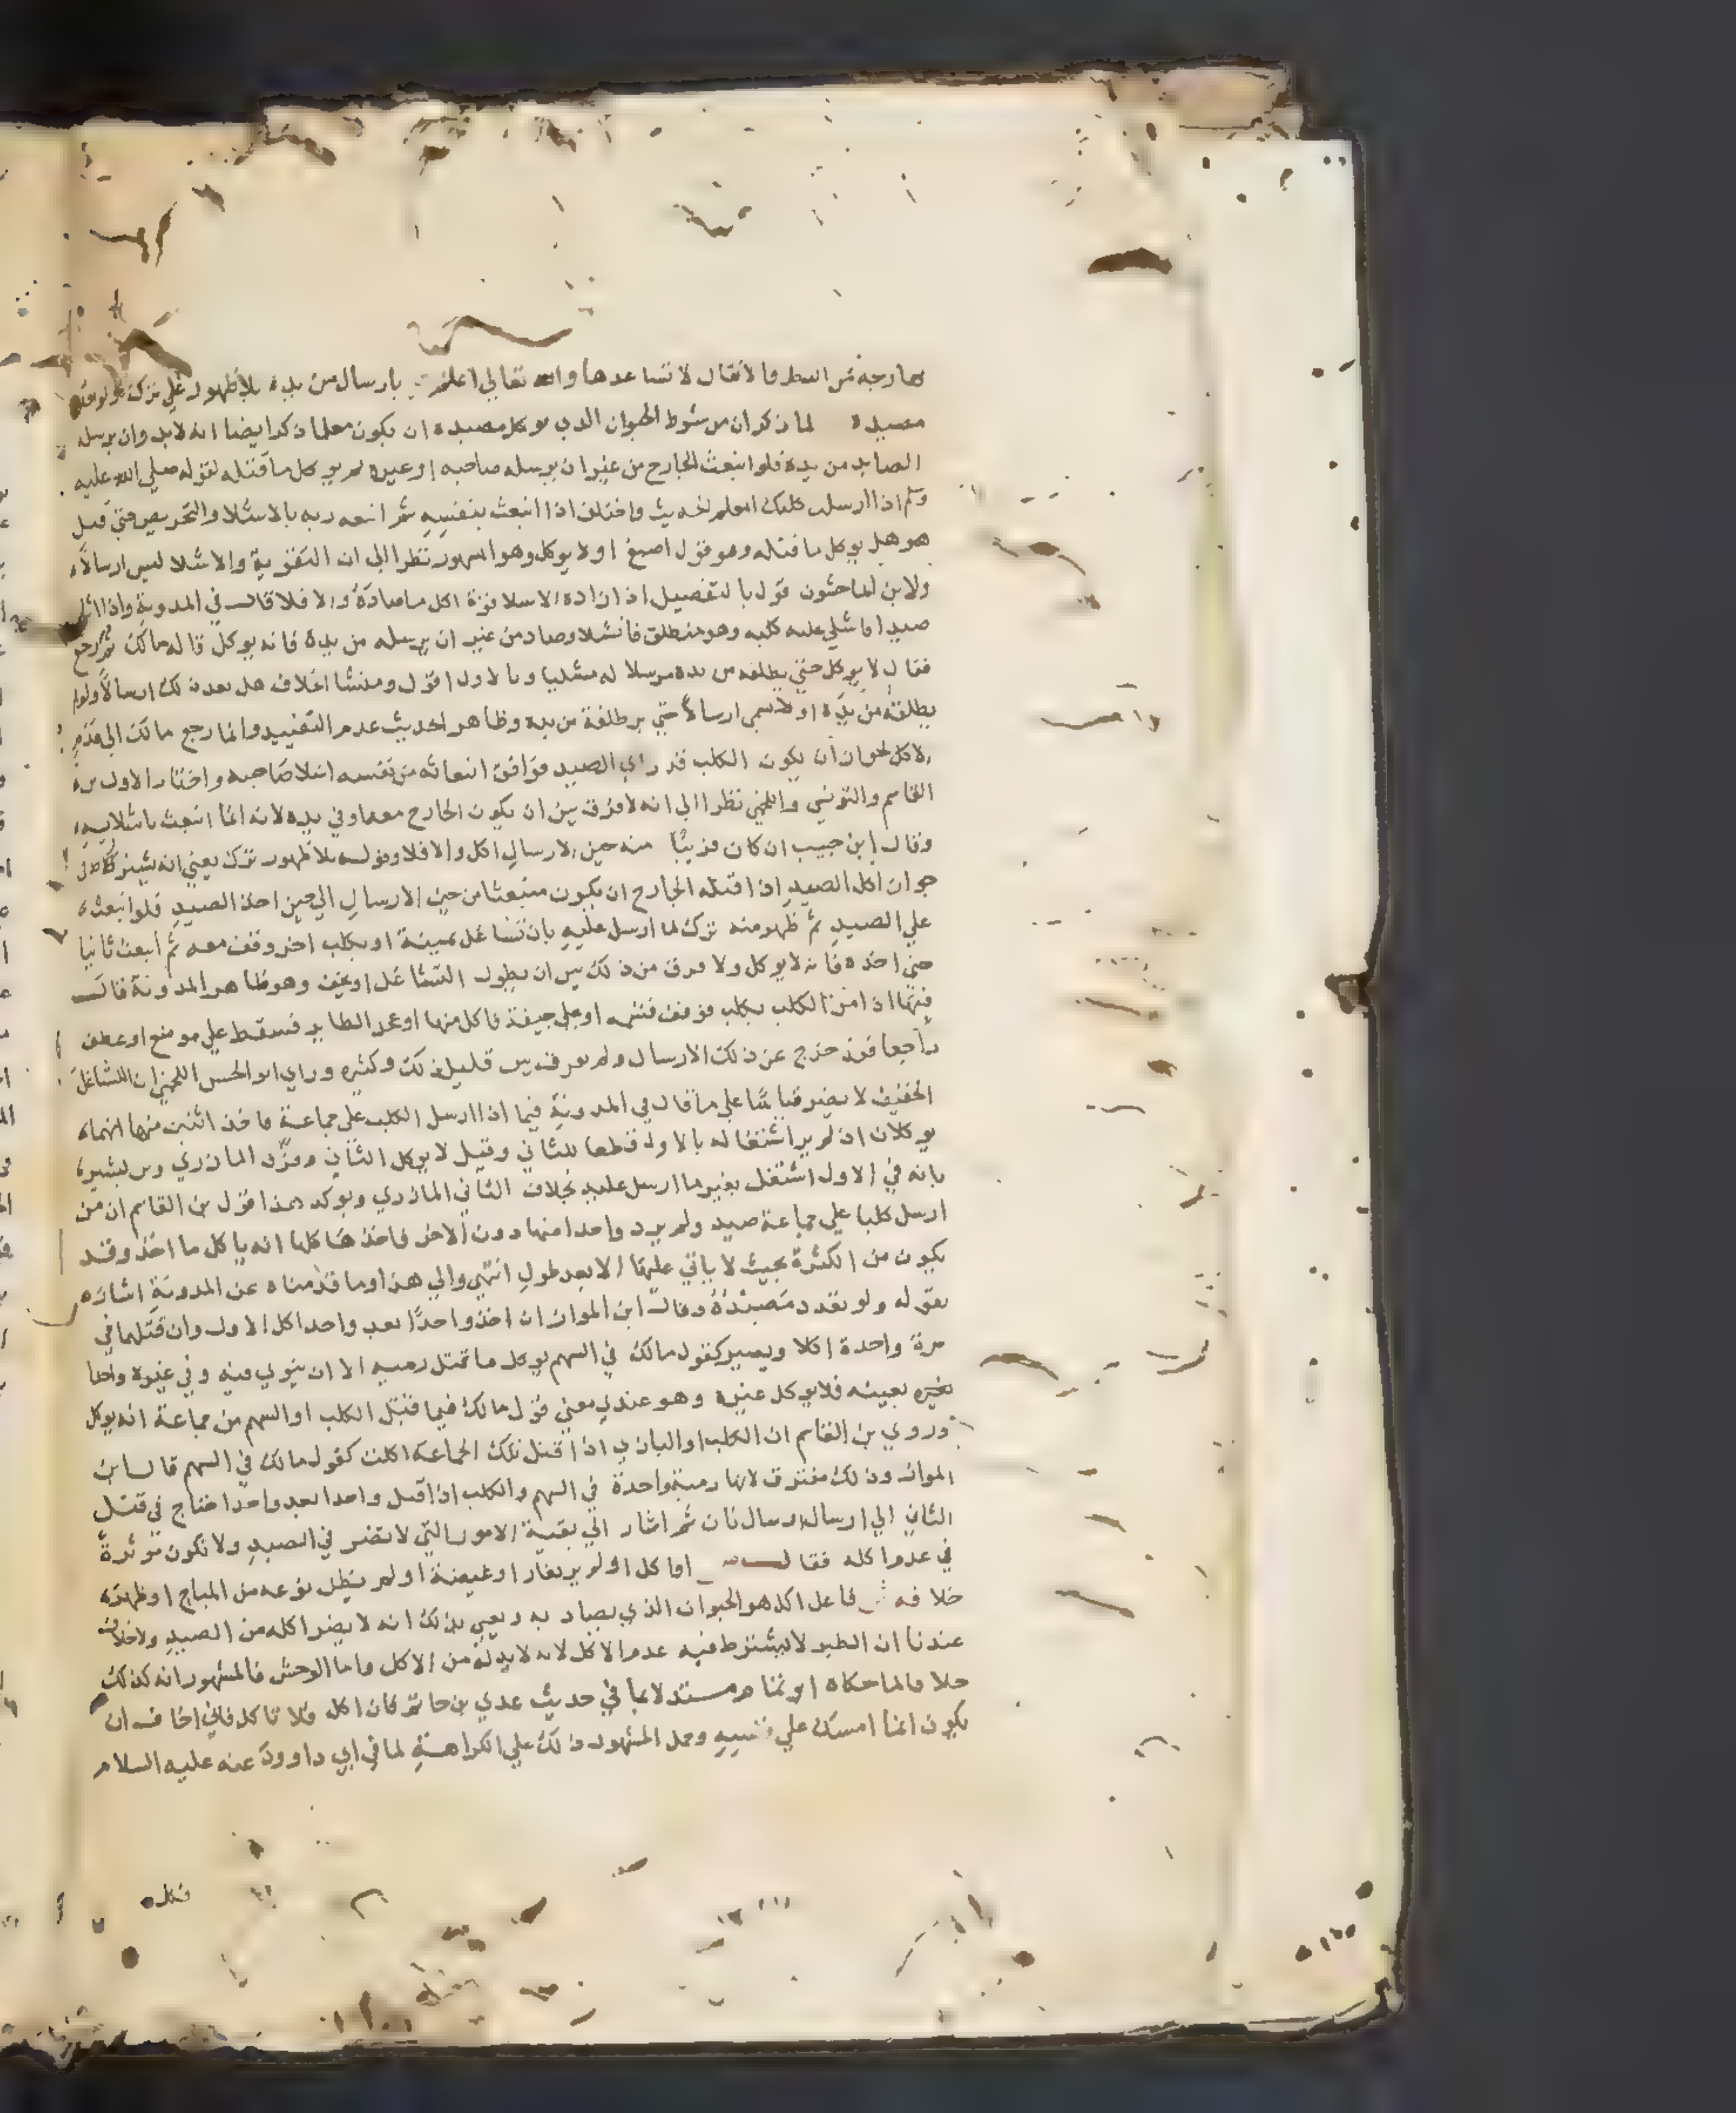 خارجة من النظر فالانقال لا تساعدها والله تعالى اعلم بارسال من يده بلا ظهور على ترك ولو تعدد
مصيده لما ذكر ان من شرط الحيوان الذي يوكل مصيده ان يكون معلما ذكر ايضا انه لا بد وان يرسله
الصايد من يده فلو انبعث الجارح من غير ان يرسله صاحبه او غيره لم يوكل ما قتله لقوله صلي الله عليه
وسلم اذا ارسلت كلبك المعلم الحديث واختلف اذا انبعث بنفسه ثم اتبعه ربه بالاشلا والتحريص حتي قتل
هو هل يوكل ما قتله وهو قول اصبغ او لا يوكل وهو المشهور نظرا الي ان التقوية والاشلا ليس ارسالا
ولابن الماجشون قول بالتفصيل ان زاده الاشلا قوة اكل ما صاده والا فلا قال في المدونة واذا اثار
صيدا فاشلي عليه كلبه وهو منطلق فانشلا وصاد من غير ان يرسله من يده فانه يوكل قاله مالك ثم رجع
فقال لا يوكل حتي يطلقه من يده مرسلا له مشليا وبالاول اقول ومنشا الخلاف هل يعد ذلك ارسالا ولو لم
يطلقه من يده او لا يسمي ارسالا حتي يطلقه من يده وظاهر الحديث عدم التقييد وانما رجع مالك الي عدم
الاكل لجواز ان يكون الكلب قد راي الصيد فوافق انبعاثه من نفسه اشلا صاحبه واختار الاول بن
القاسم والتونسي واللخمي نظرا الي انه لا فرق بين ان يكون الجارح معه او في يده لانه انما انبعث باشلايه
وقال ابن حبيب ان كان قريبا منه حين الارسال اكل والا فلا وقوله بلا ظهور ترك يعني انه يشترط في
جواز اكل الصيد اذا قتله الجارح ان يكون منبعثا من حين الارسال الي حين اخذ الصيد فلو انبعث
علي الصيد ثم ظهر منه ترك لما ارسل عليه بان تشاغل بميتة او بكلب اخر وقف معه ثم انبعث ثانيا
حتي اخذه فانه لا يوكل ولا فرق من ذلك بين ان يطول التشاغل او يخف وهو ظاهر المدونة قال
فيها اذا مر الكلب بكلب فوقف فشمه او علي جيفة فاكل منها او عجز الطاير فسقط علي موضع او عطف
راجعا فقد خرج عن ذلك الارسال ولم يفرق بين قليل ذلك وكثيره وراي ابو الحسن اللخمي ان التشاغل
الخفيف لا يضر قياسا علي ما قال في المدونة فيما اذا ارسل الكلب علي جماعة فاخذ اثنين منها انهما
يوكلان اذ لم ير اشتغاله بالاول قطعا للثاني وقيل لا يوكل الثاني وفرق المازري وبن بشير
بانه في الاول اشتغل بغير ما ارسل عليه بخلاف الثاني المازري ويوكد هذا قول بن القاسم ان من
ارسل كلبا علي جماعة صيد ولم يرد واحدا منها دون الاخر فاخذها كلها انه ياكل ما اخذ وقد
يكون من الكثرة بحيث لا ياتي عليها الا بعد طول انتهي والي هذا وما قدمناه عن المدونة اشار
بقوله ولو تعدد مصيده وقال ابن المواز ان اخذ واحدا بعد واحد اكل الاول وان قتلهما في
مرة واحدة اكلا ويصير كقول مالك في السهم يوكل ما قتل رميه الا ان ينوي فيه وفي غيره واحدا
بعينه فلا يوكل غيره وهو عندي معني قول مالك فيما قتل الكلب او السهم من جماعة انه يوكل
وروي بن القاسم ان الكلب او البازي اذا قتل تلك الجماعة اكلت كقول مالك في السهم قال ابن
المواز وذلك مفترق لانها رمية واحدة في السهم والكلب اذا قتل واحدا بعد واحد احتاج في قتل
الثاني الي ارسال ارسال ثان ثم اشار الي بقية الامور التي لا تضر في الصيد ولا تكون موثرة
في عدم اكله فقال او اكل او لم ير بغار او غيضة او لم يظن نوعه من المباح او ظهر
خلافه ش فاعل اكل هو الحيوان الذي يصاد به ويعني بذلك انه لا يضر اكله من الصيد ولا خلاف
عندنا ان الطير لا يشترط فيه عدم الاكل لانه لا بد له من الاكل واما الوحش فالمشهور انه كذلك
خلافا لما حكاه ابو تمام مستدلا بما في حديث عدي بن حاتم فان اكل فلا تاكل فاني اخاف ان
يكون انما امسك علي نفسه وحمل المشهور ذلك علي الكراهة لما في ابي داوود عنه عليه السلام
فكله